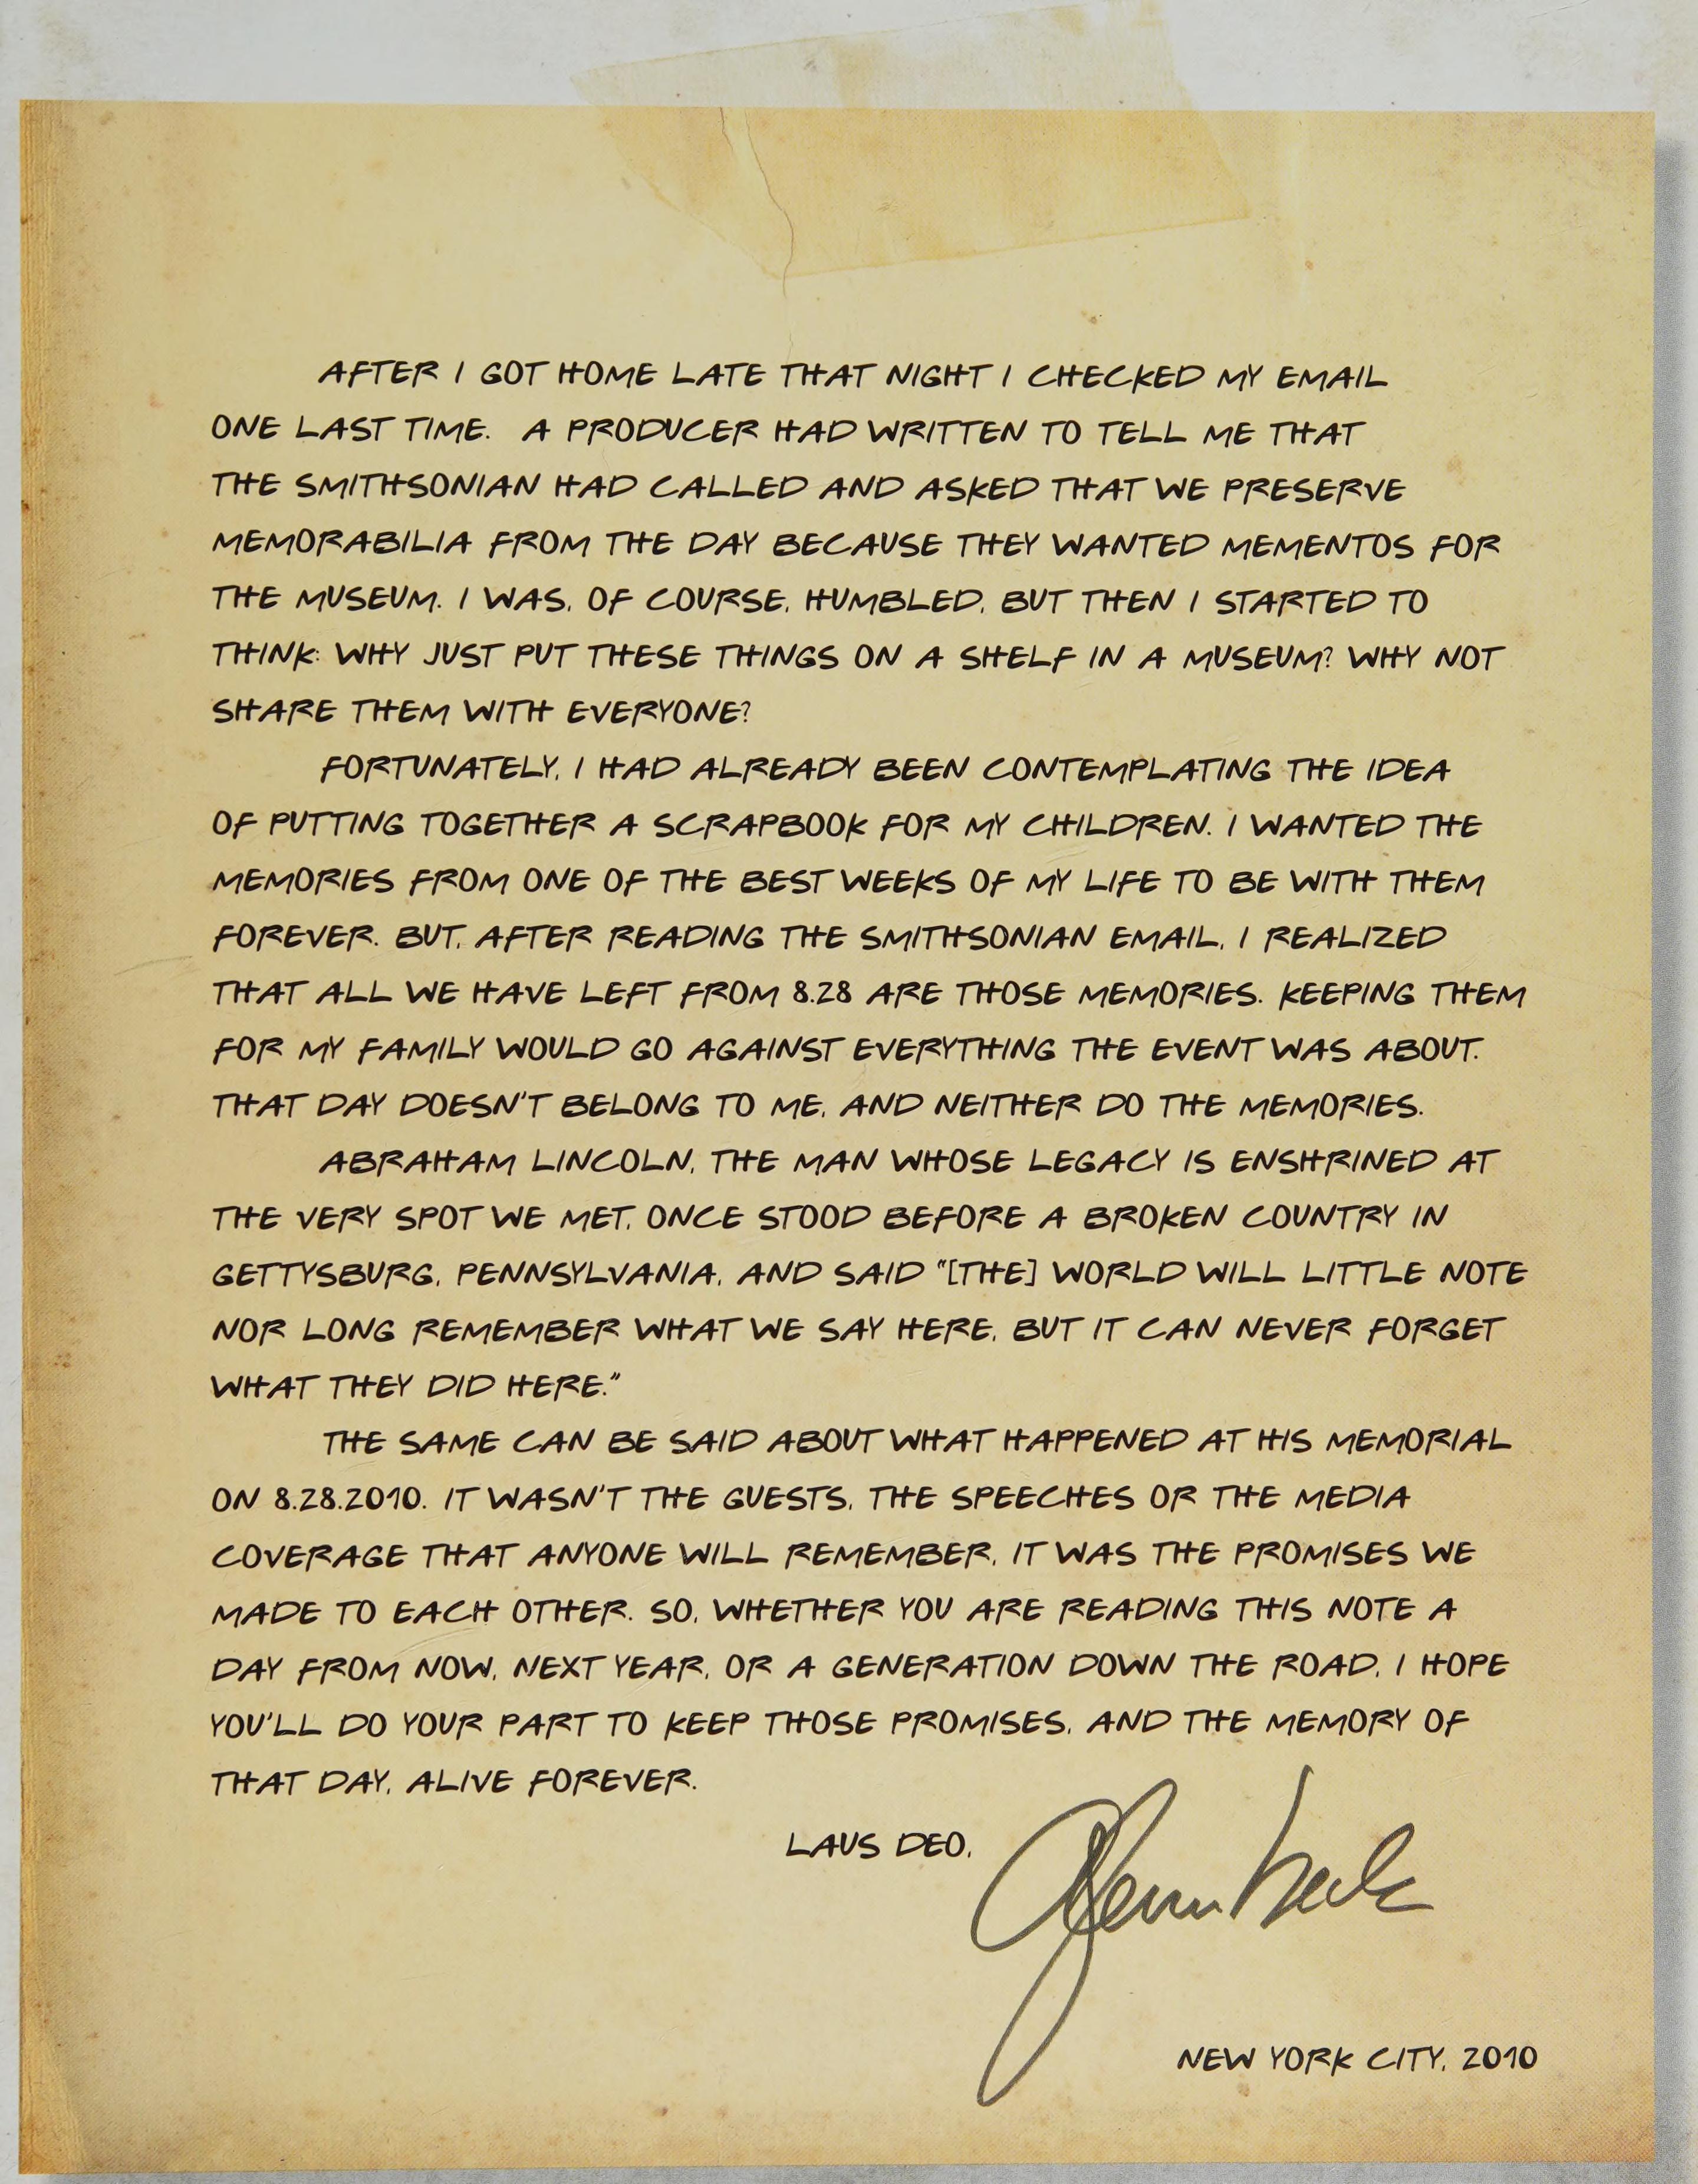 AFTER I GOT HOME LATE THAT NIGHT I CHECKED MY EMAIL
ONE LAST TIME. A PRODUCER HAD WRITTEN TO TELL ME THAT
THE SMITHSONIAN HAD CALLED AND ASKED THAT WE PRESERVE
MEMORABILIA FROM THE DAY BECAUSE THEY WANTED MEMENTOS FOR
THE MUSEUM. I WAS, OF COURSE, HUMBLED, BUT THEN I STARTED TO
THINK: WHY JUST PUT THESE THINGS ON A SHELF IN A MUSEUM? WHY NOT
SHARE THEM WITH EVERYONE?
FORTUNATELY, I HAD ALREADY BEEN CONTEMPLATING THE IDEA
OF PUTTING TOGETHER A SCRAPBOOK FOR MY CHILDREN. I WANTED THE
MEMORIES FROM ONE OF THE BEST WEEKS OF MY LIFE TO BE WITH THEM
FOREVER. BUT, AFTER READING THE SMITHSONIAN EMAIL, I REALIZED
THAT ALL WE HAVE LEFT FROM 8.28 ARE THOSE MEMORIES. KEEPING THEM
FOR MY FAMILY WOULD GO AGAINST EVERYTHING THE EVENT WAS ABOUT.
THAT DAY DOESN'T BELONG TO ME, AND NEITHER DO THE MEMORIES.
ABRAHAM LINCOLN, THE MAN WHOSE LEGACY IS ENSHRINED AT
THE VERY SPOT WE MET, ONCE STOOD BEFORE A BROKEN COUNTRY IN
GETTYSBURG, PENNSYLVANIA, AND SAID "[THE] WORLD WILL LITTLE NOTE
NOR LONG REMEMBER WHAT WE SAY HERE, BUT IT CAN NEVER FORGET
WHAT THEY DID HERE."
THE SAME CAN BE SAID ABOUT WHAT HAPPENED AT HIS MEMORIAL
ON 8.28.2010. IT WASN'T THE GUESTS, THE SPEECHES OR THE MEDIA
COVERAGE THAT ANYONE WILL REMEMBER, IT WAS THE PROMISES WE
MADE TO EACH OTHER. SO, WHETHER YOU ARE READING THIS NOTE A
DAY FROM NOW, NEXT YEAR, OR A GENERATION DOWN THE ROAD, I HOPE
YOU'LL DO YOUR PART TO KEEP THOSE PROMISES, AND THE MEMORY OF
THAT DAY, ALIVE FOREVER.
LAUS DEO,
Glenn Beck
NEW YORK CITY, 2010